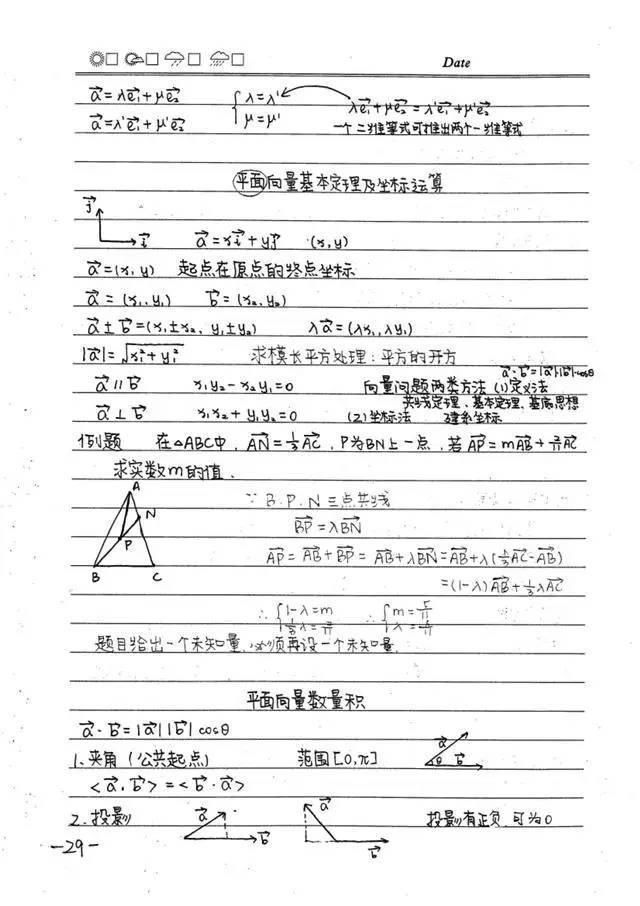 Date
a⃗=λe₁⃗+μe₂⃗ {λ=λ' λe₁⃗+μe₂⃗=λ'e₁⃗+μ'e₂⃗
a⃗=λ'e₁⃗+μ'e₂⃗ μ=μ' 一个二维等式可推出两个一维等式
平面向量基本定理及坐标运算
j⃗
i⃗ a⃗=xi⃗+yj⃗ (x,y)
a⃗=(x,y) 起点在原点的终点坐标
a⃗=(x₁,y₁) b⃗=(x₂,y₂)
a⃗±b⃗=(x₁±x₂, y₁±y₂) λa⃗=(λx₁,λy₁)
|a⃗|=√x₁²+y₁² 求模长平方处理:平方的开方
a⃗·b⃗=|a⃗||b⃗|cosθ
a⃗∥b⃗ x₁y₂-x₂y₁=0 向量问题两类方法 (1)定义法
共线定理、基本定理、基底思想
a⃗⊥b⃗ x₁x₂+y₁y₂=0 (2)坐标法 建系坐标
例题 在△ABC中,AN⃗=AC⃗,P为BN上一点,若AP⃗=mAB⃗+AC⃗
求实数m的值.
A
N
P
B C
∵B.P.N三点共线
BP⃗=λBN⃗
AP⃗=AB⃗+BP⃗=AB⃗+λBN⃗=AB⃗+λ(AC⃗-AB⃗)
=(1-λ)AB⃗+λAC⃗
∴{1-λ=m ∴{m=
λ= λ=
题目给出一个未知量,必须再设一个未知量.
平面向量数量积
a⃗·b⃗=|a⃗||b⃗|cosθ
1.夹角(公共起点) 范围[0,π] a⃗ θ b⃗
<a⃗,b⃗>=<b⃗·a⃗>
2.投影 a⃗ b⃗ a⃗ b⃗ 投影有正负,可为0
-29-